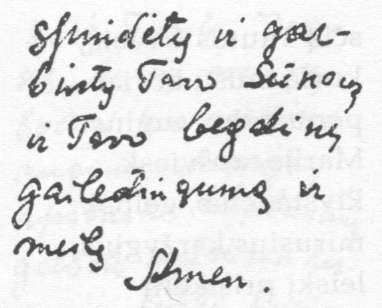 spindėtų ir gar-
bintų Tavo Sūnaus
ir Tavo begalinį
gailestingumą ir
meilę
Amen.